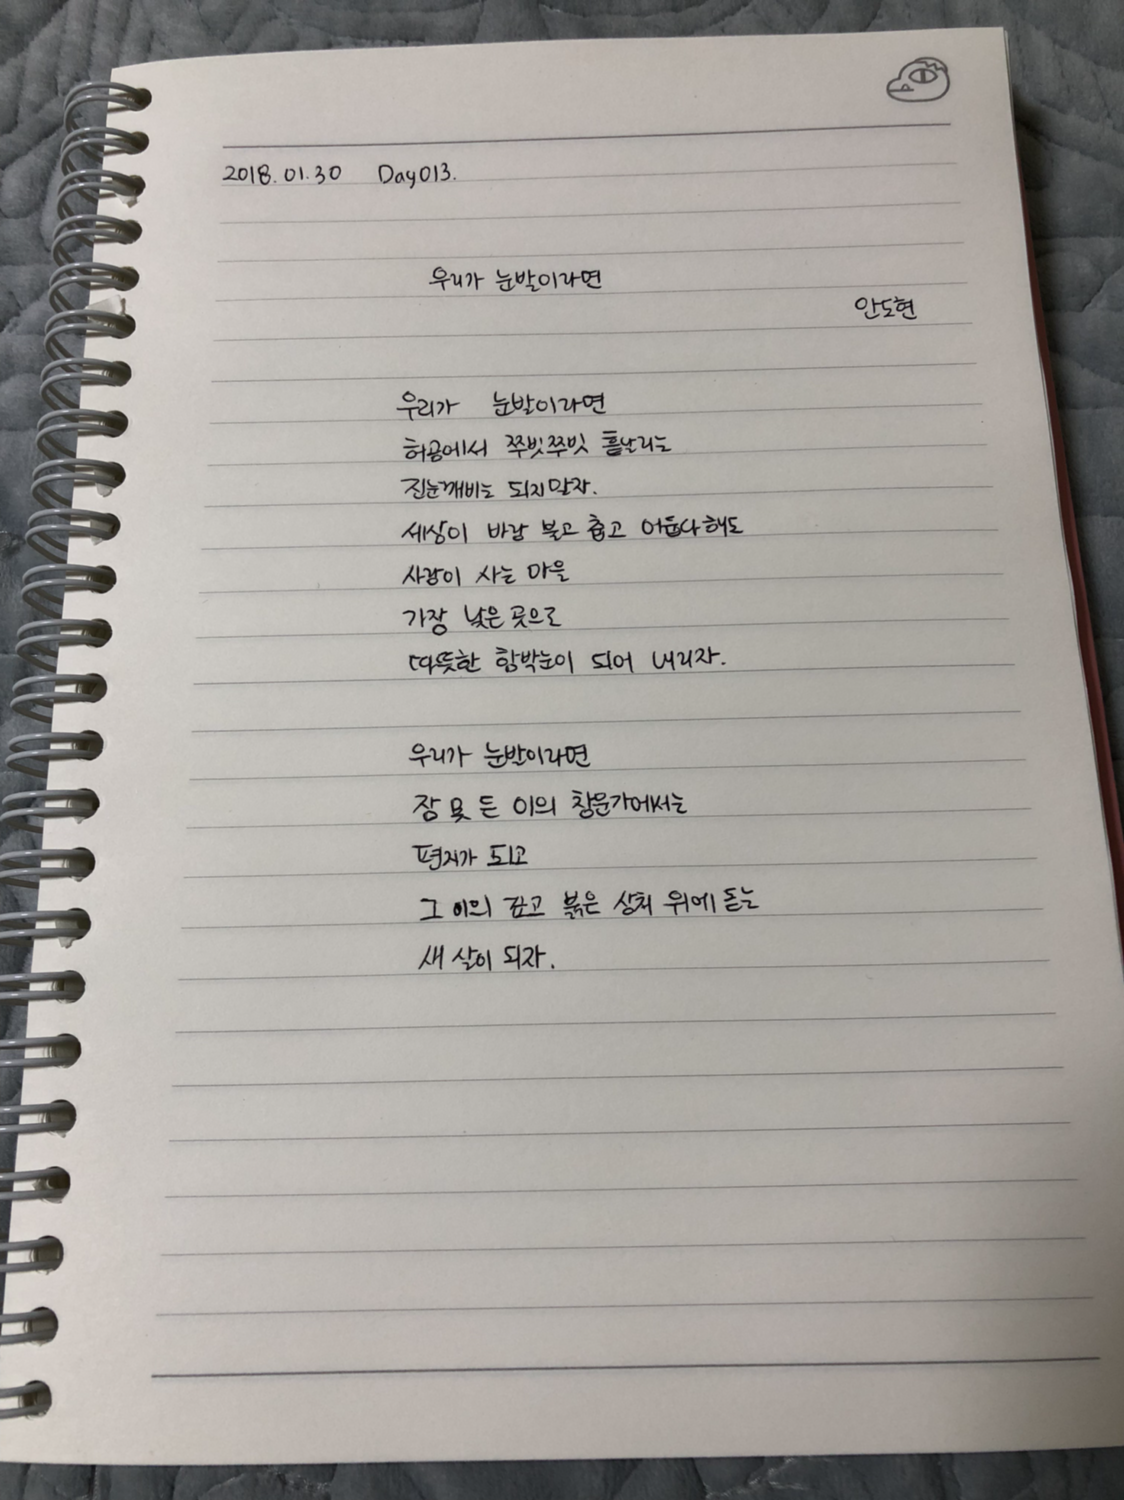 2018.01.30 Day013.
우리가 눈발이라면
안도현
우리가 눈발이라면
허공에서 쭈빗쭈빗 흩날리는
진눈깨비는 되지말자.
세상이 바람 불고 춥고 어둡다해도
사람이 사는 마을
가장 낮은 곳으로
따뜻한 함박눈이 되어 내리자.
우리가 눈발이라면
잠 못 든 이의 창문가에서는
편지가 되고
그 이의 깊고 붉은 상처 위에 돋는
새 살이 되자.